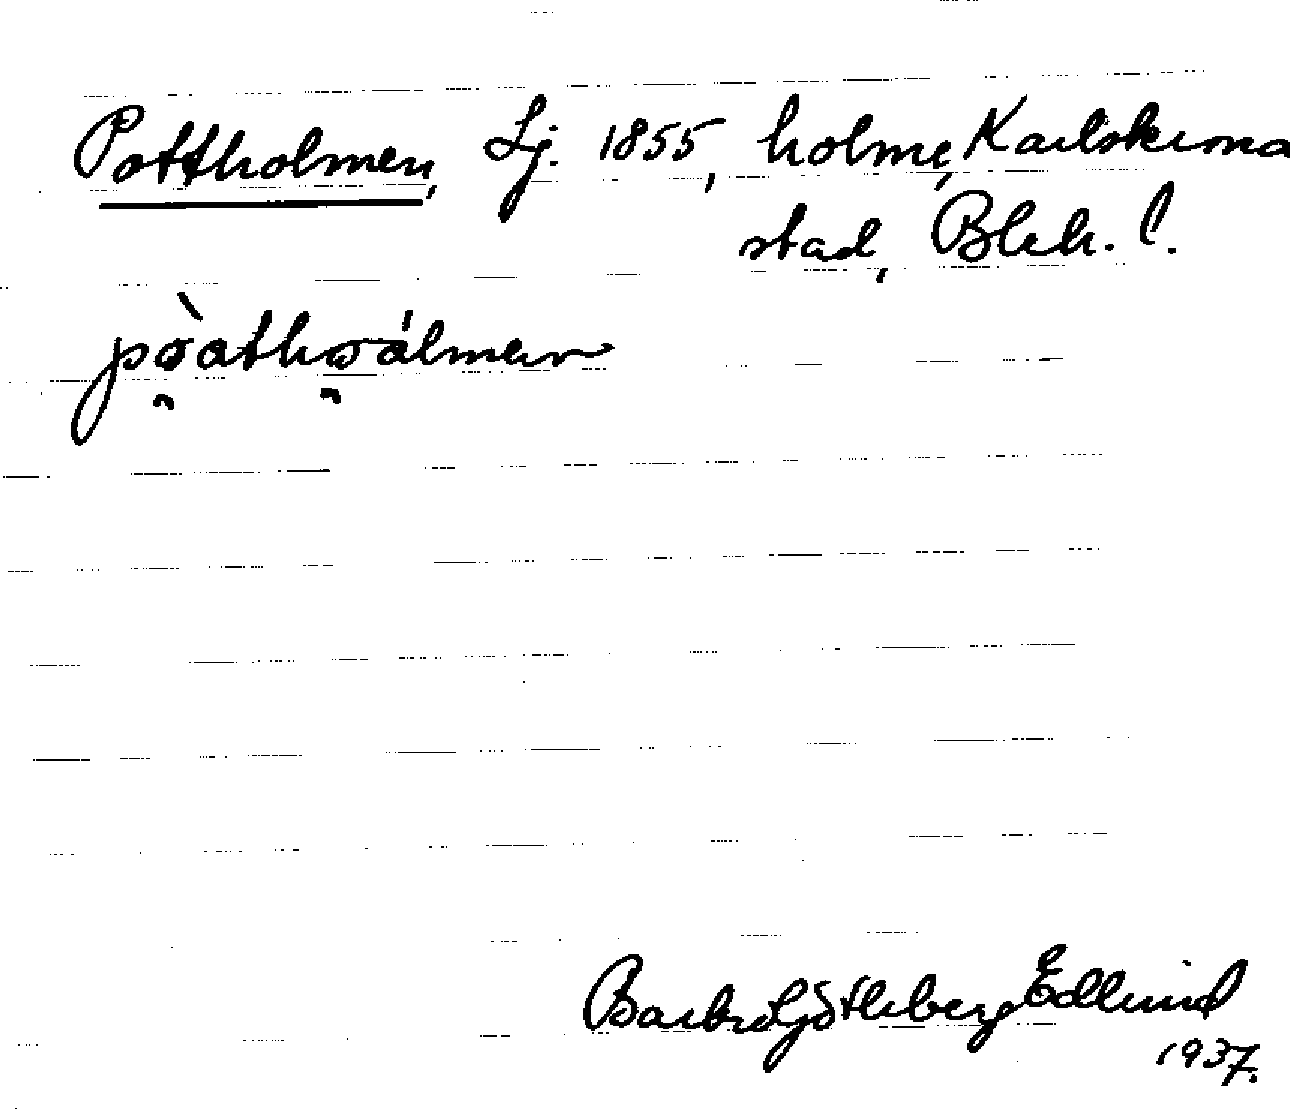 Pottholmen, Lj. 1855, holme, Karlskrona
stad, Blek. l.
Barbro Götleberg Edlund
1937.